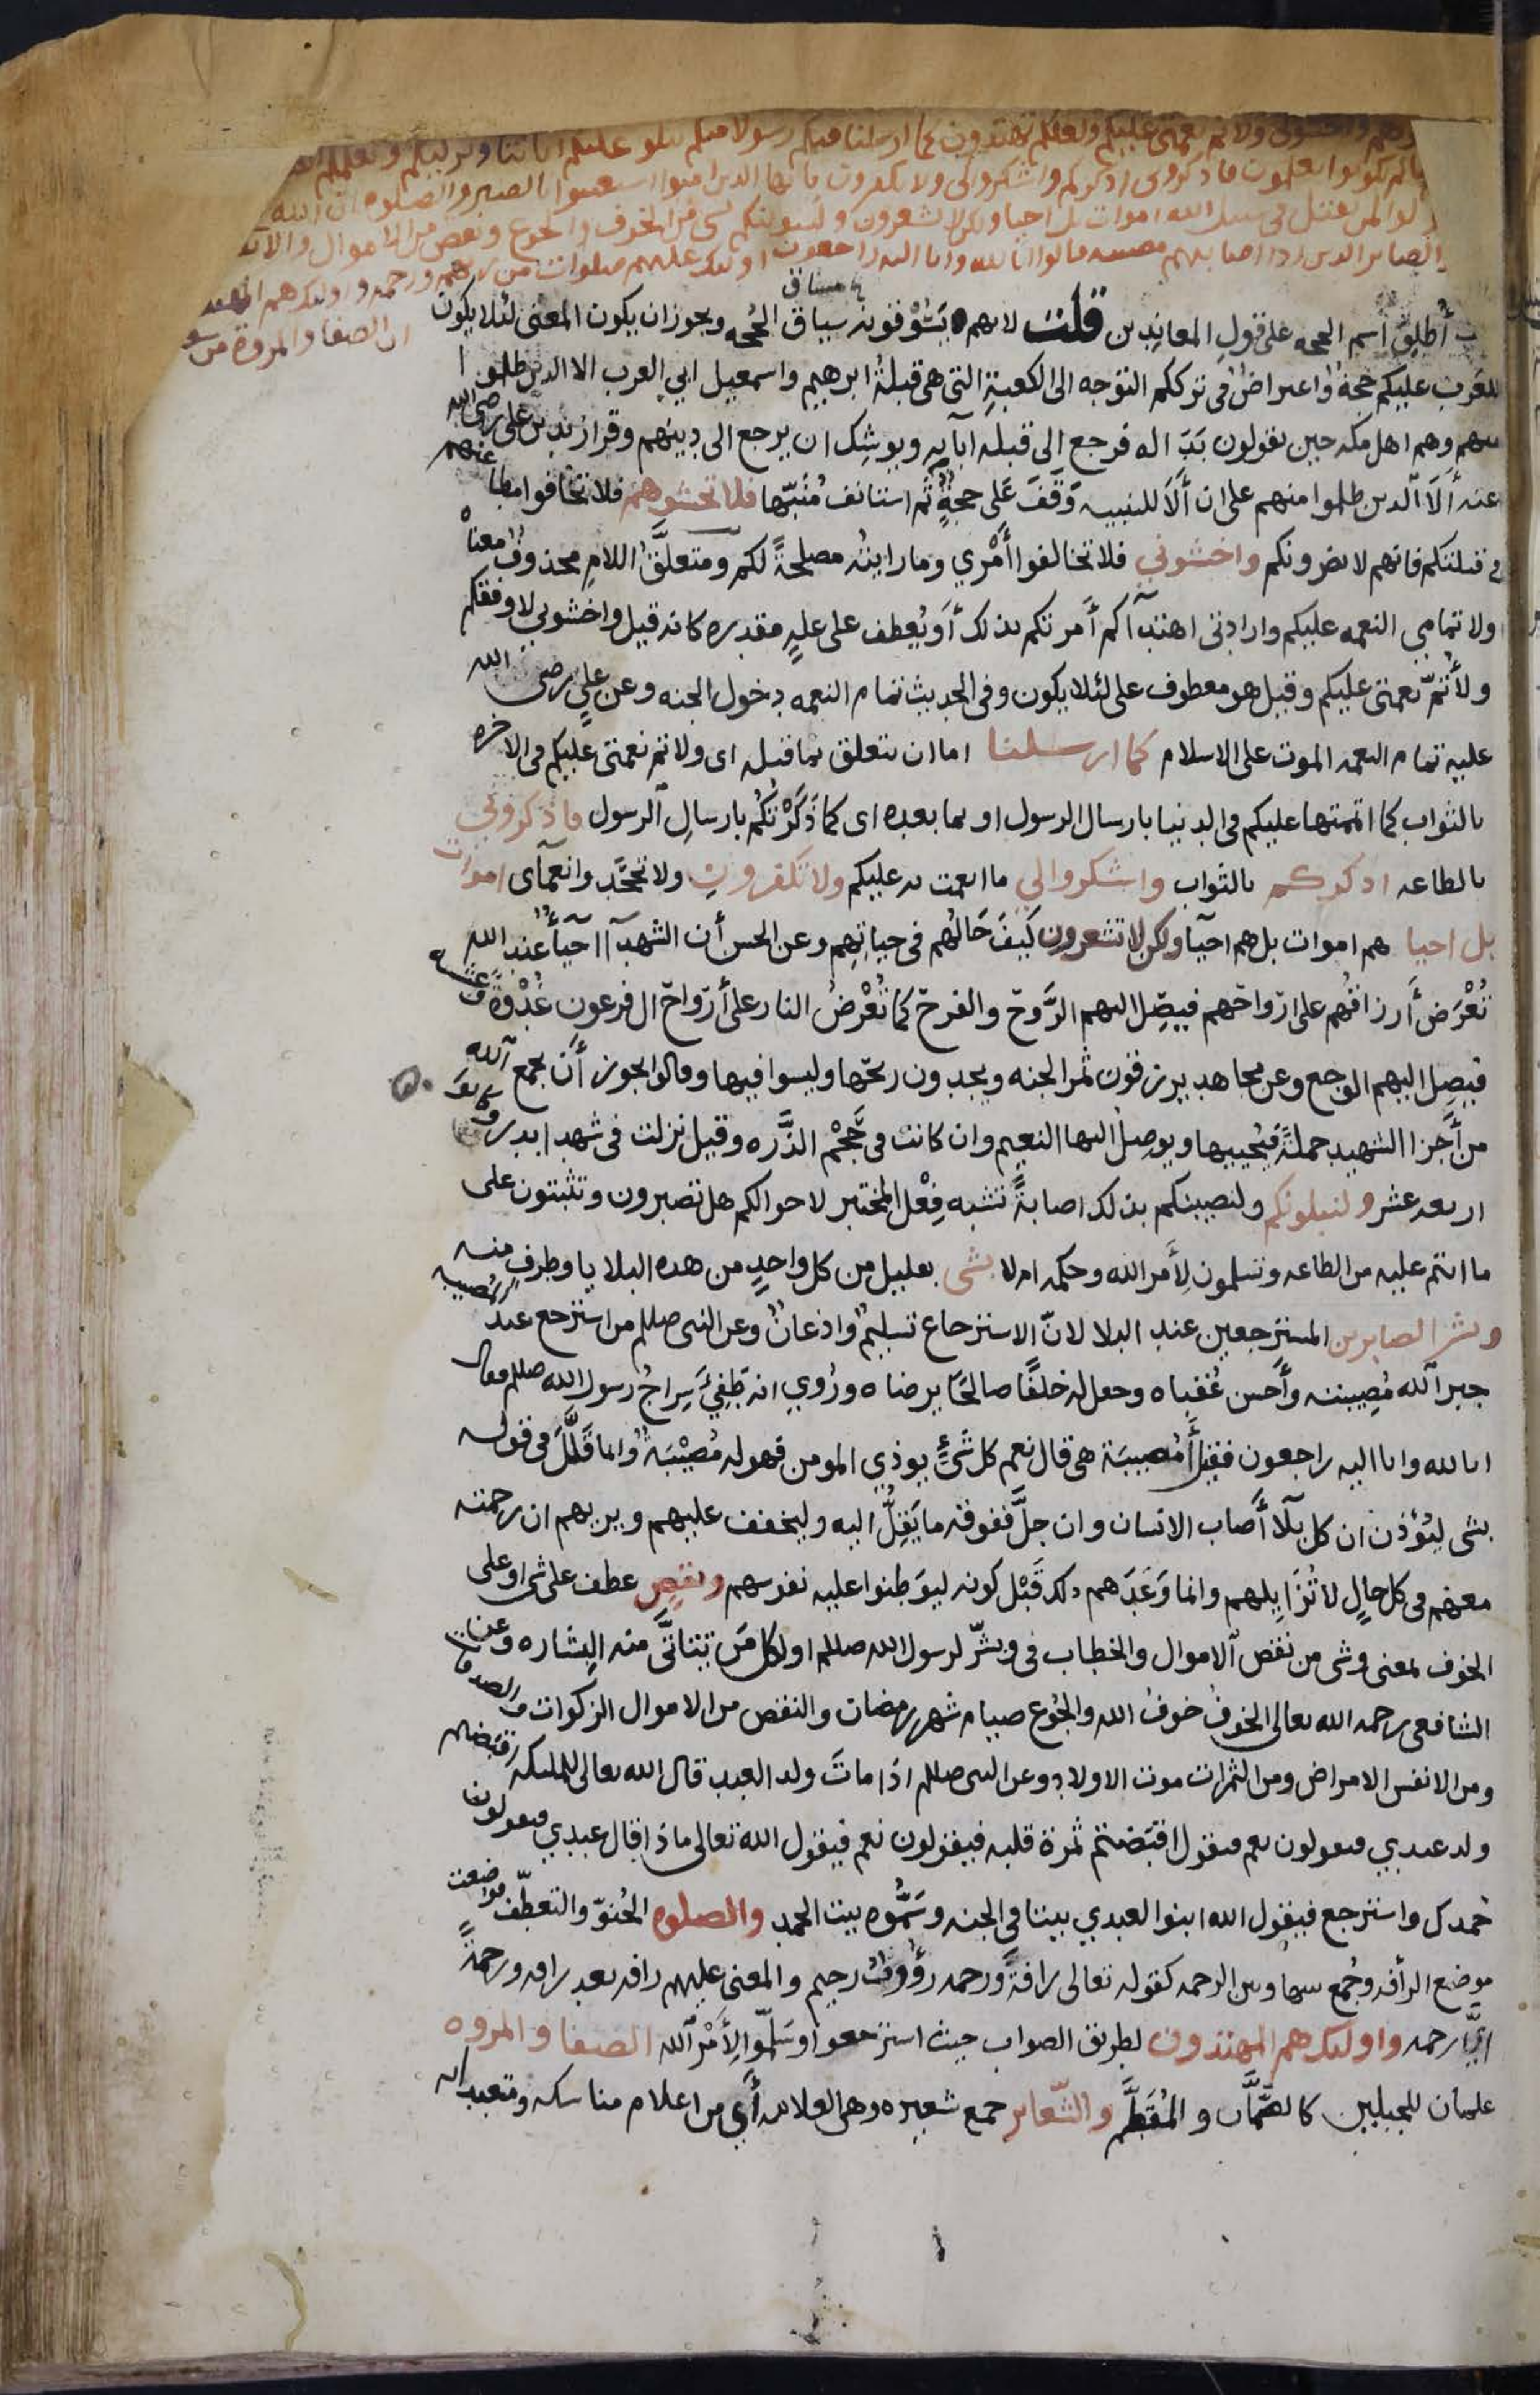 واخشوني ولاتم نعمتي عليكم ولعلكم تهتدون كما ارسلنا فيكم رسولا منكم يتلو عليكم اياتنا ويزكيكم ويعلمكم
مالم تكونوا تعلمون فاذكروني اذكركم واشكروا لي ولا تكفرون يا ايها الذين امنوا استعينوا بالصبر والصلوه ان الله
لمن يقتل في سبيل الله اموات بل احيا ولكن لا تشعرون ولنبلونكم بشي من الخوف والجوع ونقص من الاموال والانفس
الصابرين الذين اذا اصابتهم مصيبه قالوا انا لله وانا اليه راجعون اولئك عليهم صلوات من ربهم ورحمه واولئك هم المهتدون
ان الصفا والمروة من
مساق
أُطلِقَ اسم الحجه على قول المعاندين قلت لانهم يَسُوْقونه سياق الحُجه ويجوز ان يكون المعنى لئلا يكون
للعَرب عليكم حجةٌ واعتراضٌ في ترككم التوجه الى الكعبةِ التي هي قبلةُ ابرهيم واسمعيل ابي العرب الا الذين ظلموا
منهم وهم اهل مكه حين يقولون بَدَا له فرجع الى قبلة آبآيه ويوشِك ان يرجع الى دينهم وقرا زيد بن علي رضى الله عنهم
عنه أَلَا الّذين ظلموا منهم على ان أَلَا للتنبيه وَقَفَ عَلى حجةٌ ثم استانف مُنَبّها فلا تخشوهم فلا تخافوا مطا
في قبلتكم فانهم لا يضرونكم واخشوني فلا تخالفوا أَمْري وما رايتُه مصلحةً لكم ومتعلَّقُ اللامِ محذوفٌ معناهْ
ولاتمامي النعمه عليكم وارادتي اهتدآكم أَمرتكم بذلك أَو يُعطف على علةٍ مقدره كانه قيل واخشوني لاوفقكم
ولأُتمَّ نعمتي عليكم وقيل هو معطوف على لئلا يكون وفي الحديث تمام النعمه دخول الجنه وعن عليٍ رضى الله
عليه تمام النعمه الموت على الاسلام كما ارسلنا اما ان يتعلق بما قبله اى ولاتم نعمتي عليكم في الاخره
بالثواب كما اتممتها عليكم في الدنيا بارسال الرسول او بما بعده اى كما ذَكَرْتُكُم بارسالِ الرسول فاذكروني
بالطاعه اذكركم بالثواب واشكروا لي ما انعمت به عليكم ولا تكفرون ولا تجحَدوا نعمآى اموات
بل احيا هم اموات بل هم احيآ ولكن لا تشعرون كَيفَ حَالُهم في حياتهِم وعن الحسن أن الشهدآ احيآءٌ عند الله
تُعْرَض أَرزاقُهم على ارواحهم فيَصِل اليهم الرَّوح والفرح كما تُعْرَضُ النار على أَرواح ال فرعون غُدْوةً وعشيه
فيصِل اليهم الوجع وعن مجاهد يرزقون ثمر الجنه ويجدون ريحها وليسوا فيها وقالوا يجوز أَن يجمع آلله
من أَجزا الشهيد جملةً فيُحييها ويوصِلُ اليها النعيم وان كانت في حَجْم الذَّره وقيل نزلت في شهدا بدر وكانوا
اربعه عشر ولنبلونكم ولنصيبنكم بذلك اصابةً تشبه فِعْل المختبر لاحوالكم هل تصبرون وتثبتون على
ما انتم عليه من الطاعه وتسلمون لِأَمر الله وحكمه ام لا بشى بقليل من كل واحدٍ من هذه البلايا وطرف منه
وبشر الصابرين المسترجعين عند البلا لانّ الاسترجاع تسليمٌ واذعانٌ وعن النبي صللم من استرجع عند المُصيبه
جبر آلله مُصِيبته وأَحسن عُقباه وجعل له خلفًا صالحًا يرضاه ورُوي انه طَفِئَ سِراجُ رسول الله صللم فقال
انا لله وانا اليه راجعون فقيل أَمُصيبَة هي قال نعم كل شَئٍ يوذي المومن فهو له مُصِيْبَةٌ وانما قَلَّلَ في قوله
بشى ليُؤذن ان كل بَلآ أَصاب الانسان وان جلَّ ففوقه ما يَقِلُّ اليه وليخفف عليهم ويريهم ان رحمته
معهم في كل حالٍ لا تُزَايلهم وانما وَعَدَهم ذلك قَبْل كونه ليوَطنوا عليه نفوسهم ونقصٍ عطف على شي او على
الخوف بمعنى وشى من نقص الاموال والخطاب في وبشّر لرسول الله صللم او لكل مَن يتاتَّى منه البِشاره وعن
الشافعى رحمه الله تعالى الخوفُ خوفُ الله والجُوع صيام شهر رمضان والنقص من الاموال الزكوات والصدقات
ومن الانفس الامراض ومن الثمرات موت الاولاد وعن النبى صللم اذا ماتَ ولد العبد قال الله تعالى للمليكه اقبَضتم
ولد عبدي فيقولون نعم فيقول اقبَضتم ثمرة قلبه فيقولون نعم فيقول الله تعالى ماذا قال عبدي فيقولون
حَمِدك واسترجع فيقول الله ابنوا لعبدي بيتا في الجنه وسَمُّوه بيت الحمد والصلوه الحُنوّ والتعطّف فوضعت
موضع الرأفه وجُمع بينها وبين الرحمه كقوله تعالى رافةً ورحمه رؤوفٌ رحيم والمعنى عليهم رافه بعد رافه ورحمةً
ايَّ رحمه واولئك هم المهتدون لطريق الصواب حيث استرجعوا وسَلّموا لِأَمْر آلله الصفا والمروه
علمان للجبلين كالصَّمَّان والمُقَطَّم والشّعاير جمع شعيره وهى العلامه أَي من اعلام مناسكه ومتعبداته